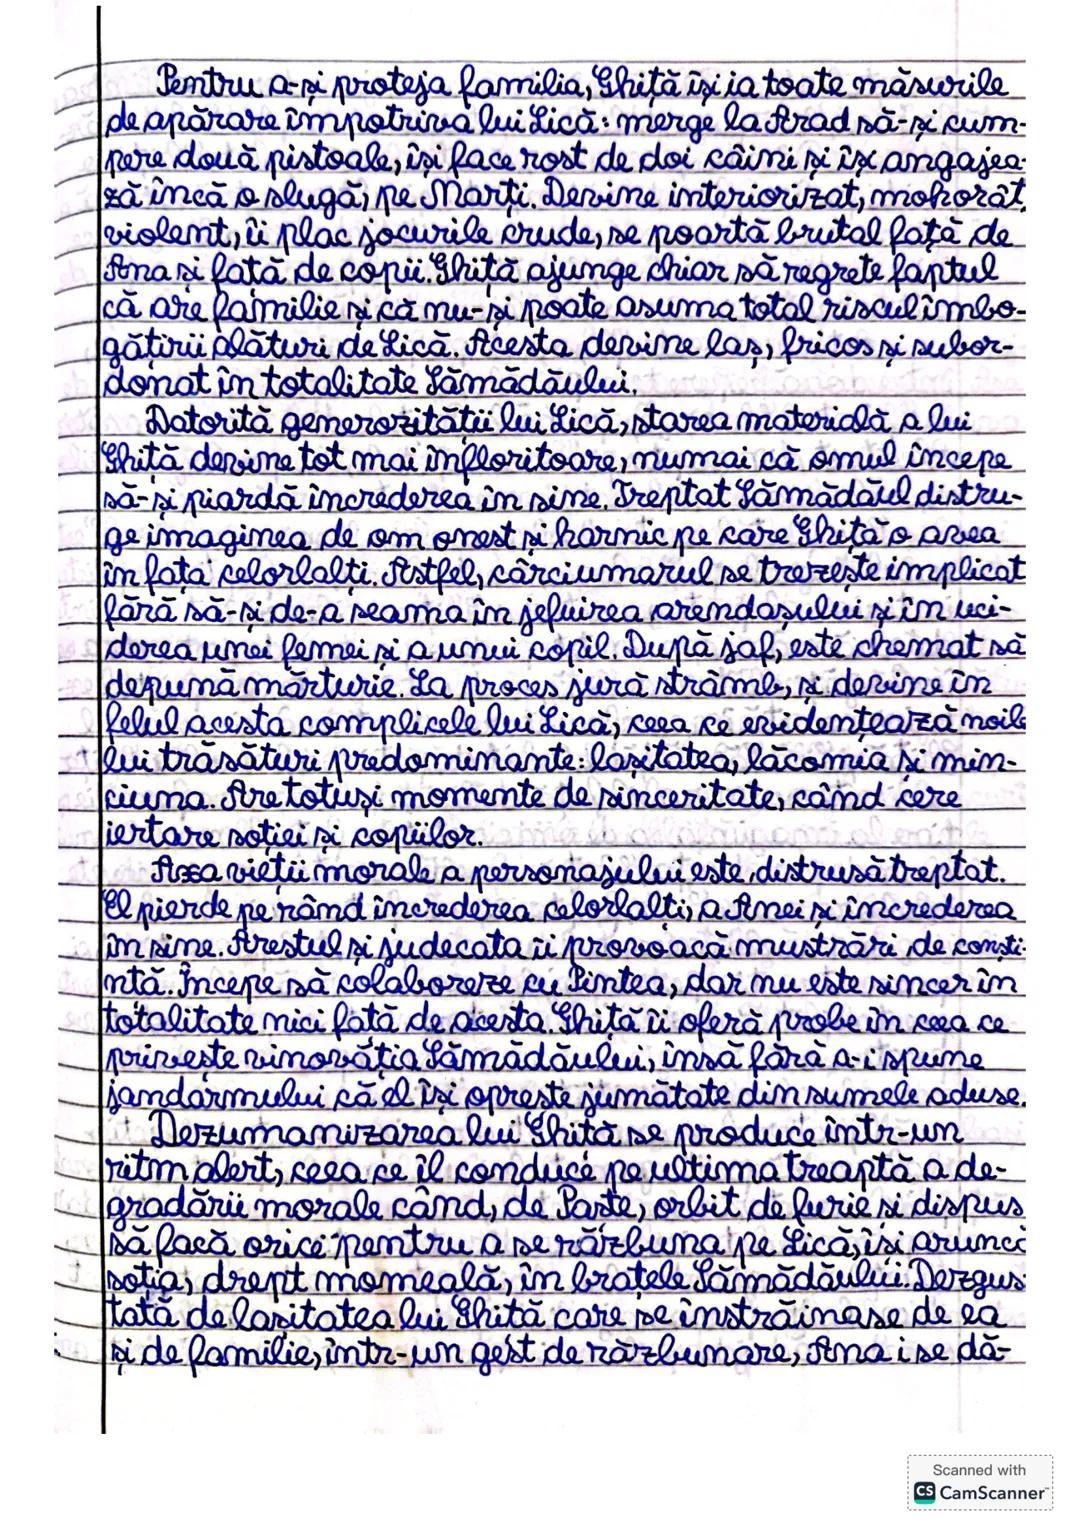 Pentru a-și proteja familia, Ghiță își ia toate măsurile
de apărare împotriva lui Lică: merge la Arad să-și cum-
pere două pistoale, își face rost de doi câini și își angajea-
ză încă o slugă, pe Marți. Devine interiorizat, mohorât,
violent, îi plac jocurile crude, se poartă brutal față de
Ana și față de copii. Ghiță ajunge chiar să regrete faptul
că are familie și că nu-și poate asuma total riscul îmbo-
gățirii alături de Lică. Acesta devine laș, fricos și subor-
donat în totalitate Sămădăului.
Datorită generozității lui Lică, starea materială a lui
Ghiță devine tot mai înfloritoare, numai că omul începe
să-și piardă încrederea în sine. Treptat Sămădăul distru-
ge imaginea de om onest și harnic pe care Ghiță o avea
în fața celorlalți. Astfel, cârciumarul se trezește implicat
fără să-și de-a seama în jefuirea arendașului și în uci-
derea unei femei și a unui copil. După jaf, este chemat să
depună mărturie. La proces jură strâmb, și devine în
felul acesta complicele lui Lică, ceea ce evidențează noile
lui trăsături predominante: lașitatea, lăcomia și min-
ciuna. Are totuși momente de sinceritate, când cere
iertare soției și copiilor.
Axa vieții morale a personajului este distrusă treptat.
El pierde pe rând încrederea celorlalți, a Anei și încrederea
în sine. Arestul și judecata îi provoacă mustrări de conști-
ntă. Începe să colaboreze cu Pintea, dar nu este sincer în
totalitate nici față de acesta. Ghiță îi oferă probe în ceea ce
privește vinovăția Sămădăului, însă fără a-i spune
jandarmului că el își oprește jumătate din sumele aduse.
Dezumanizarea lui Ghiță se produce într-un
ritm alert, ceea ce îl conduce pe ultima treaptă a de-
gradării morale când, de Paște, orbit de furie și dispus
să facă orice pentru a se răzbuna pe Lică, își aruncă
soția, drept momeală, în brațele Sămădăului. Dezgus-
tată de lașitatea lui Ghiță care se înstrăinase de ea
și de familie, într-un gest de răzbunare, Ana i se dă-
Scanned with
CS CamScanner